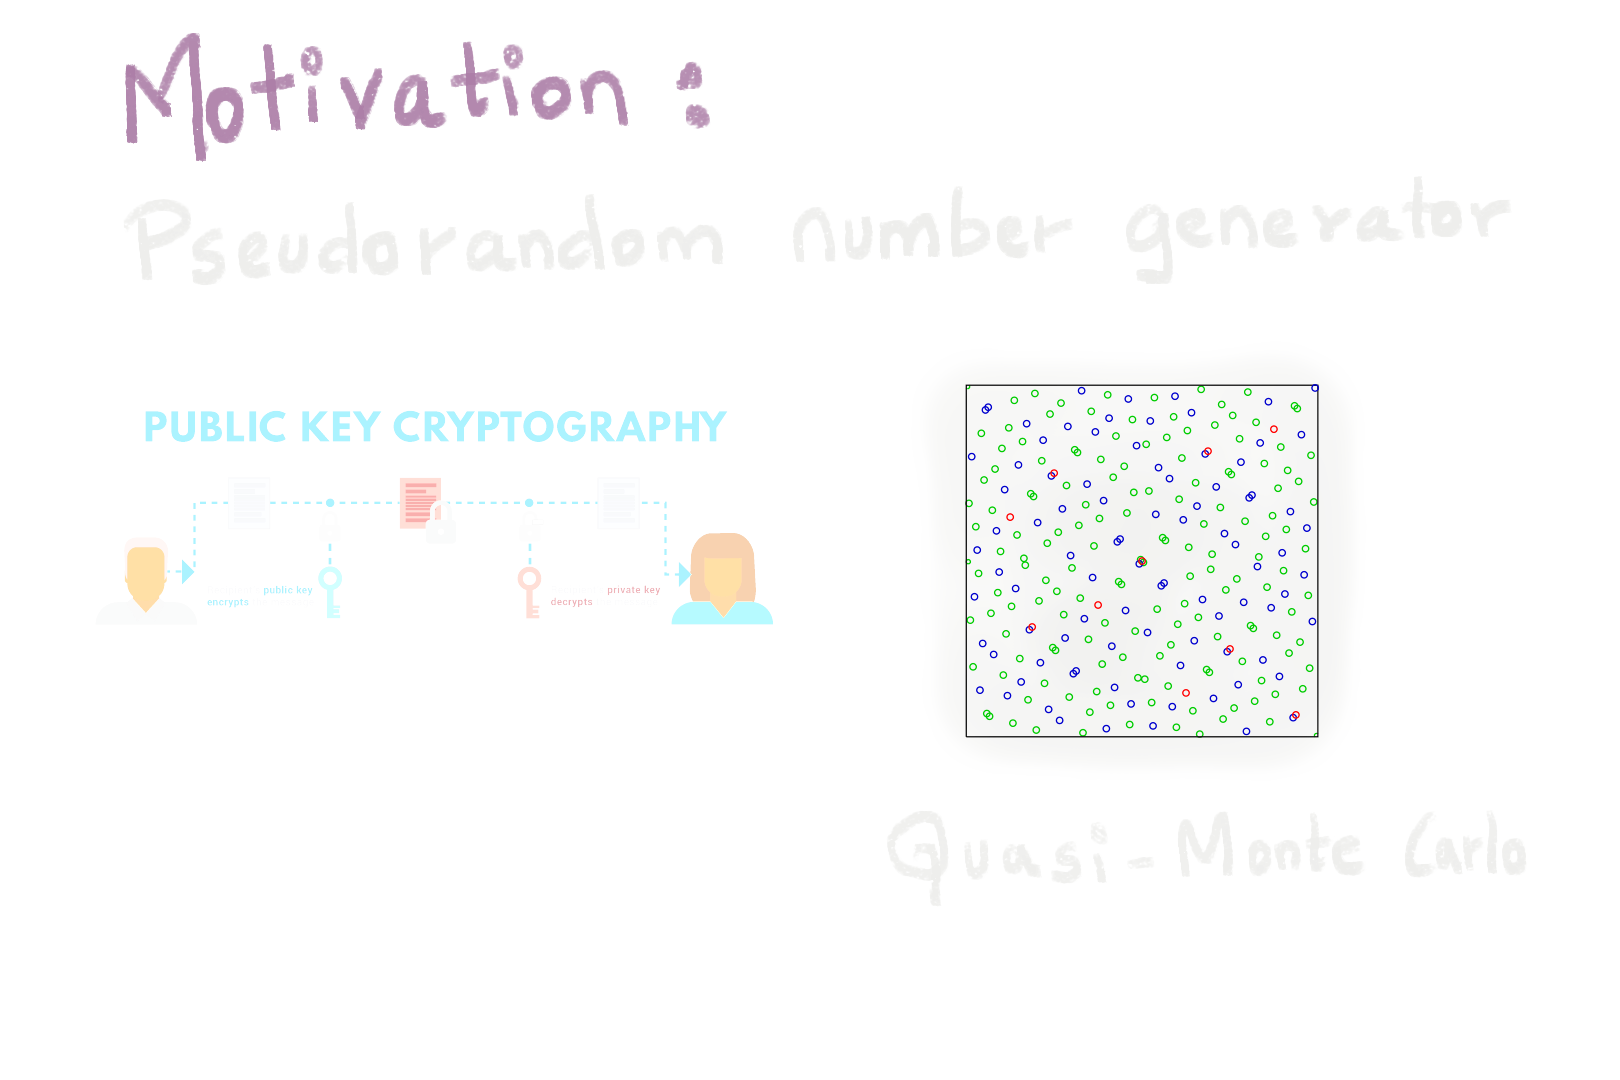 Motivation :
Pseudorandom number generator
PUBLIC KEY CRYPTOGRAPHY
public key
encrypts
private key
decrypts
Quasi-Monte Carlo